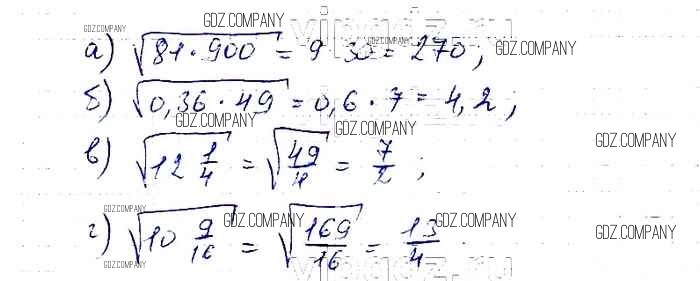 GDZ.COMPANY
vipgdz.ru
GDZ.COMPANY
GDZ.COMPANY
GDZ.COMPANY
а) √81·900 = 9 30 = 270;
GDZ.COMPANY
б) √0,36·49 = 0,6·7 = 4,2;
GDZ.COMPANY
GDZ.COMPANY
GDZ.COMPANY
в) √12 1/4 = √49/4 = 7/2;
GDZ.COMPANY
GDZ.COMPANY
GDZ.COMPANY
GDZ.COMPANY
г) √10 9/16 = √169/16 = 13/4
GDZ.COMPANY
vipgdz.ru